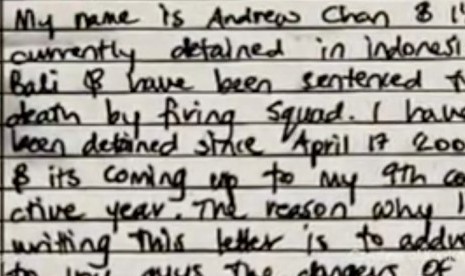 My name is Andrew Chan & I'
currently detained in Indonesi
Bali & have been sentenced t
death by firing squad. I have
been detained since April 17 200
& its coming up to my 9th co
ctive year. The reason why I
writing this letter is to addre
to you guys the dangers of